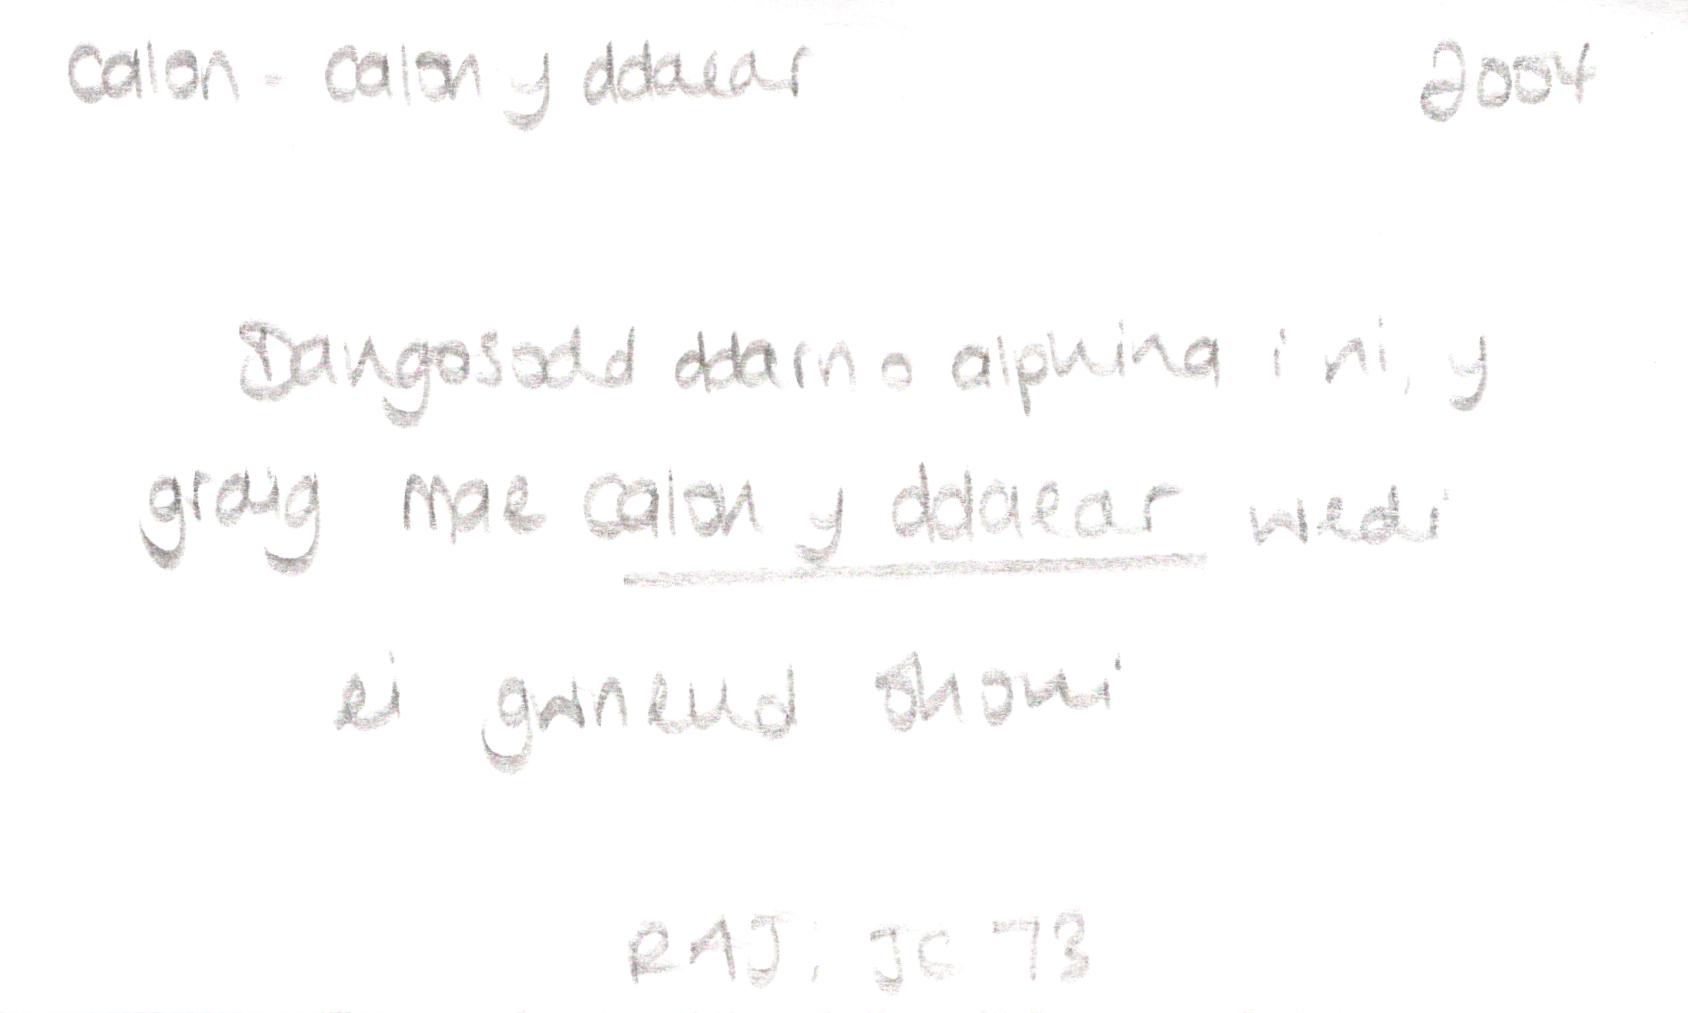 Calon - Calon y ddaear 2004
Dangosodd ddarn o alphina i ni, y
graig mae calon y ddaear wedi
ei gwneud ohoni
RAJ: JC 73